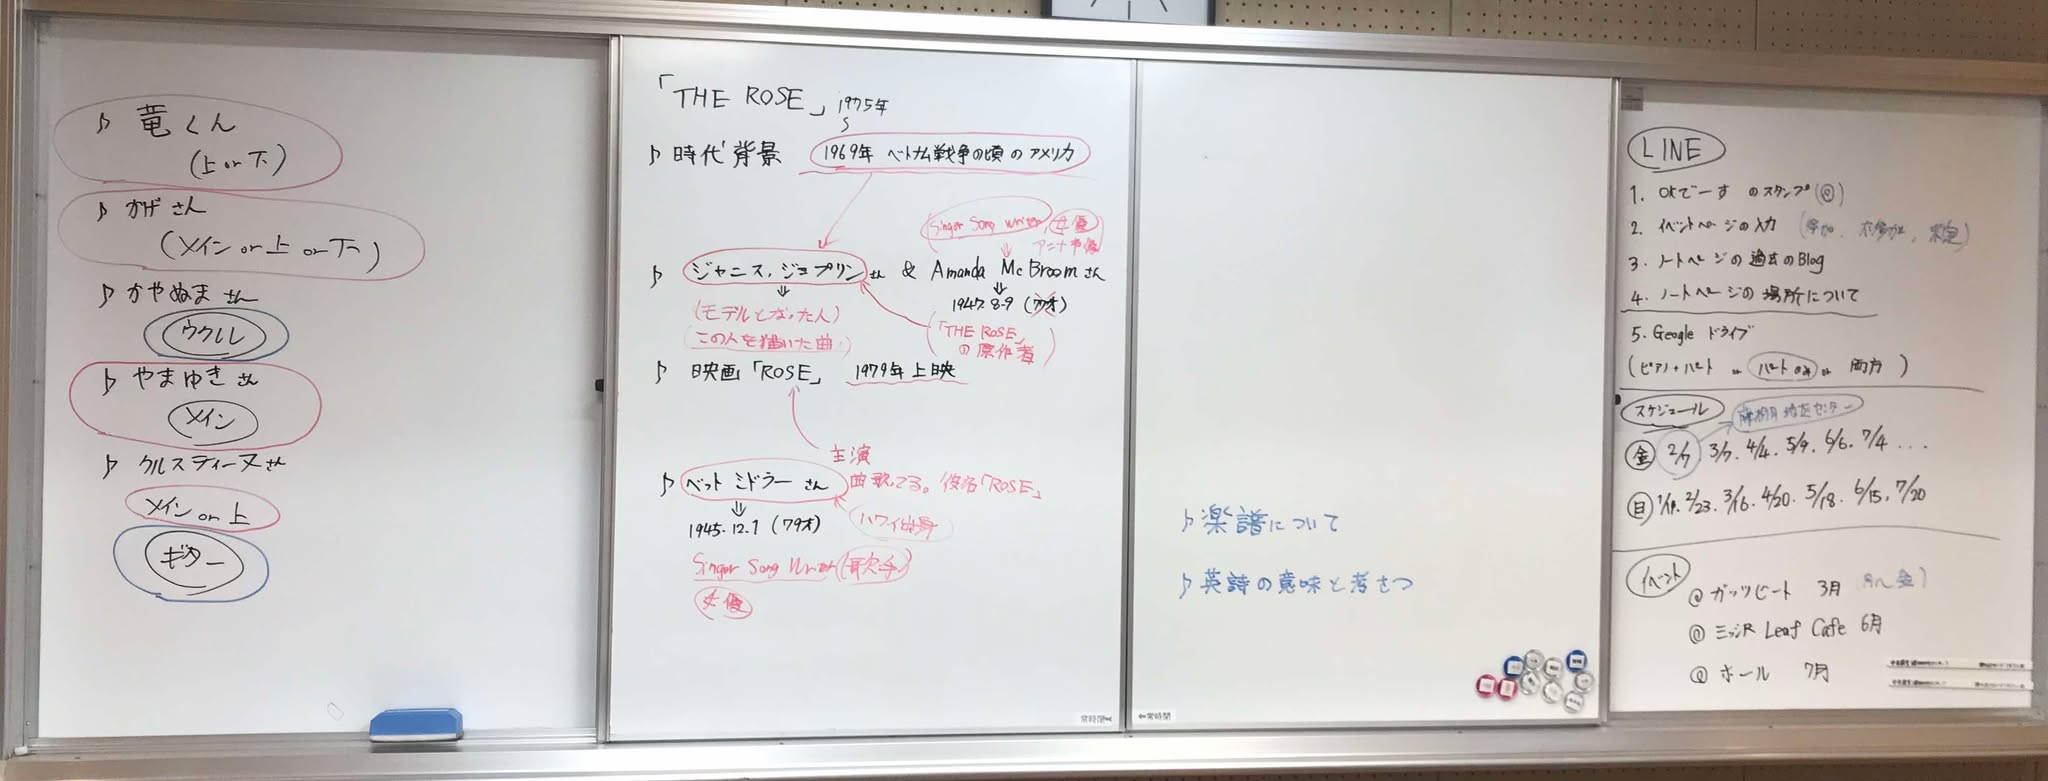 ♪ 竜くん
(上 or 下)
♪ かげさん
(メイン or 上 or 下)
♪ かやぬまさん
ウクレレ
♪ やまゆきさん
メイン
♪ クルスティーヌさん
メイン or 上
ギター
「THE ROSE」 1975年
♪ 時代背景 1969年 ベトナム戦争の頃のアメリカ
Singer Song Writer, 女優
アニメ声優
♪ ジャニス, ジョプリンさん & Amanda McBroomさん
(モデルとなった人)
この人を描いた曲.
1947.8.9 (77才)
(「THE ROSE」
の原作者)
♪ 映画「ROSE」 1979年上映
主演
♪ ベット ミドラーさん 曲歌ってる。役名「ROSE」
1945.12.1 (79才)
ハワイ出身
Singer Song Writer (歌手)
女優
♪ 楽譜について
♪ 英詩の意味と考さつ
常時閉
常時閉
LINE
1. OKでーす のスタンプ(@)
2. イベントページの入力 (参加、不参加、未定)
3. ノートページの過去のBlog
4. ノートページの場所について
5. Google ドライブ
(ピアノ+パート or パートのみ or 両方)
スケジュール
地区センター
金 2/7 3/7. 4/4. 5/9. 6/6. 7/4 ...
日 2/23. 3/16. 4/20. 5/18. 6/15. 7/20
イベント
@ ガッツビート 3月
@ Leaf Cafe 6月
@ ホール 7月